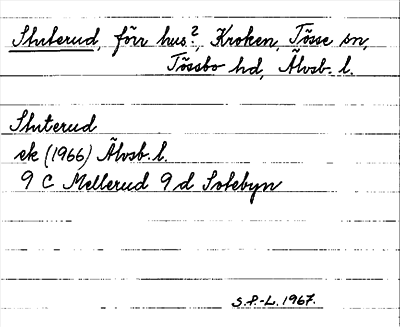 Stuterud, förr hus?, Kroken, Tösse sn,
Tössbo hd, Älvsb. l.
Stuterud
ek (1966) Älvsb. l.
9 C Mellerud 9 d Sotebyn
S.P.-L. 1967.